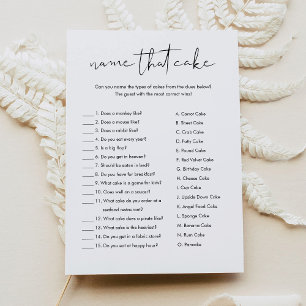 name that cake
Can you name the types of cakes from the clues below?
The guest with the most correct wins!
1. Does a monkey like?
2. Does a mouse like?
3. Does a rabbit like?
4. Do you eat every year?
5. Is a big flea?
6. Do you get in heaven?
7. Should be eaten in bed?
8. Do you have for breakfast?
9. What cake is a game for kids?
10. Goes well on a saucer?
11. What cake do you order at a
seafood restaurant?
12. What cake does a pirate like?
13. What cake is the heaviest?
14. Do you get in a fabric store?
15. Do you eat at happy hour?
A. Carrot Cake
B. Sheet Cake
C. Crab Cake
D. Patty Cake
E. Pound Cake
F. Red Velvet Cake
G. Birthday Cake
H. Cheese Cake
I. Cup Cake
J. Upside Down Cake
K. Angel Food Cake
L. Sponge Cake
M. Banana Cake
N. Rum Cake
O. Pancake